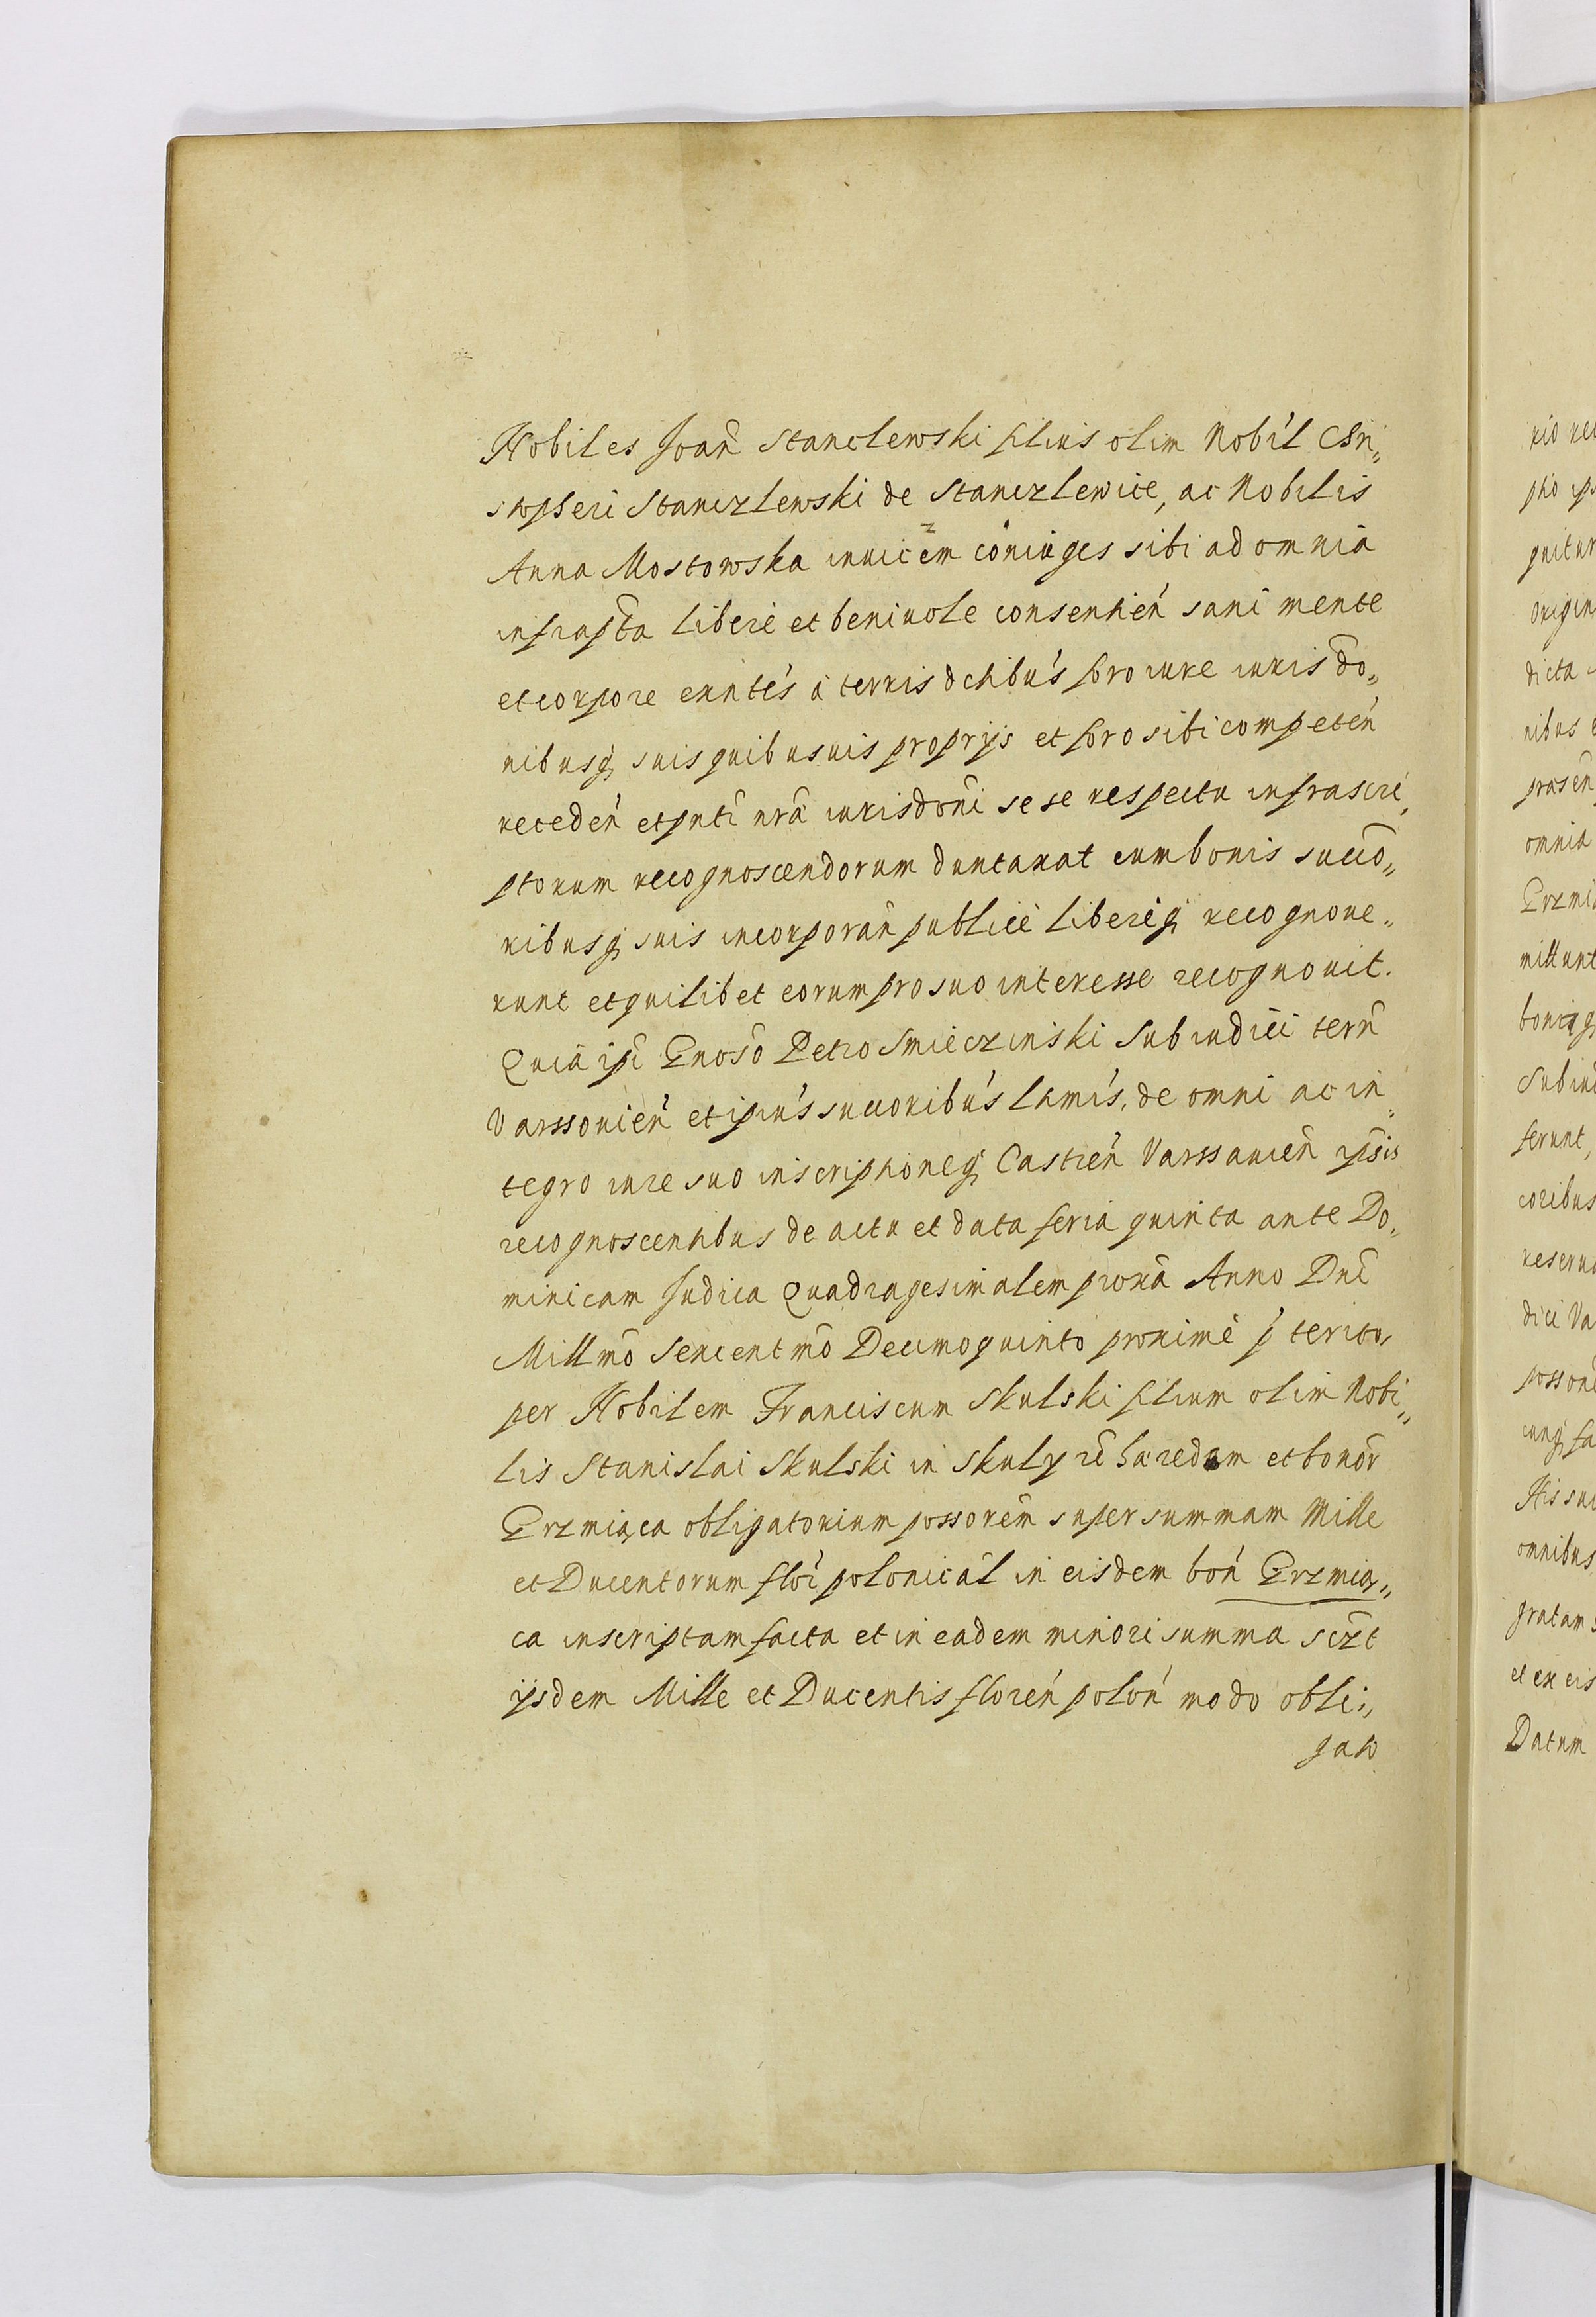 Nobiles Joan̄ Stanclewski filius olim Nobil Chri„
stopheri Stanczlewski de Stanczlewice, ac Nobilis
Anna Mostowska inuicem coniuges sibi ad omnia
infrapta liberè et beniuole consentień sani mente
et corpore exntés à terris dctibús foro iure iurisdo„
nibusq suis quibusuis proprijs et foro sibi competén
recedeń et pnti nrã iurisdoni sese respectu infrascri„
ptorum recognoscendorum duntaxat cum bonis succo„
ribusq suis incorporan publicè liberèq recognoue„
runt et quilibet eorum pro suo interesse recognouit.
Quia ipi Gnoso Petro Smieczinski Subiudici terrn
Varssouień et ipiús succoribús ltmis, de omni ac in„
tegro iure suo inscriptioneq Castreń Varssauień ipsis
recognoscentibus de actu et data feria quinta ante Do„
minicam Judica Quadragesimalem proxã Anno Dni
Millmo Sexcentmo Decimoquinto proximè p teritor
per Nobilem Franciscum Skulski filium olim Nobi„
lis Stanislai Skulski in Skuly hæredem et bonor
Grzmiąca obligatorium possorem super summam Mille
et Ducentorum flor polonical in eisdem bon Grzmią„
ca inscriptam facta et in eadem minori summa sczt
ijsdem Mille et Ducentis floreń poloń modo obli„
gato
rio re
pto ips
quitur
Origin
dicta
nibus e
præsen
omnia
Grzmią
mittunt
boniqq
Subiu
ferunt,
coribus
reserua
dici Va
possone
cunq fa
His su
omnibus
gratam s
et ex eis
Datum